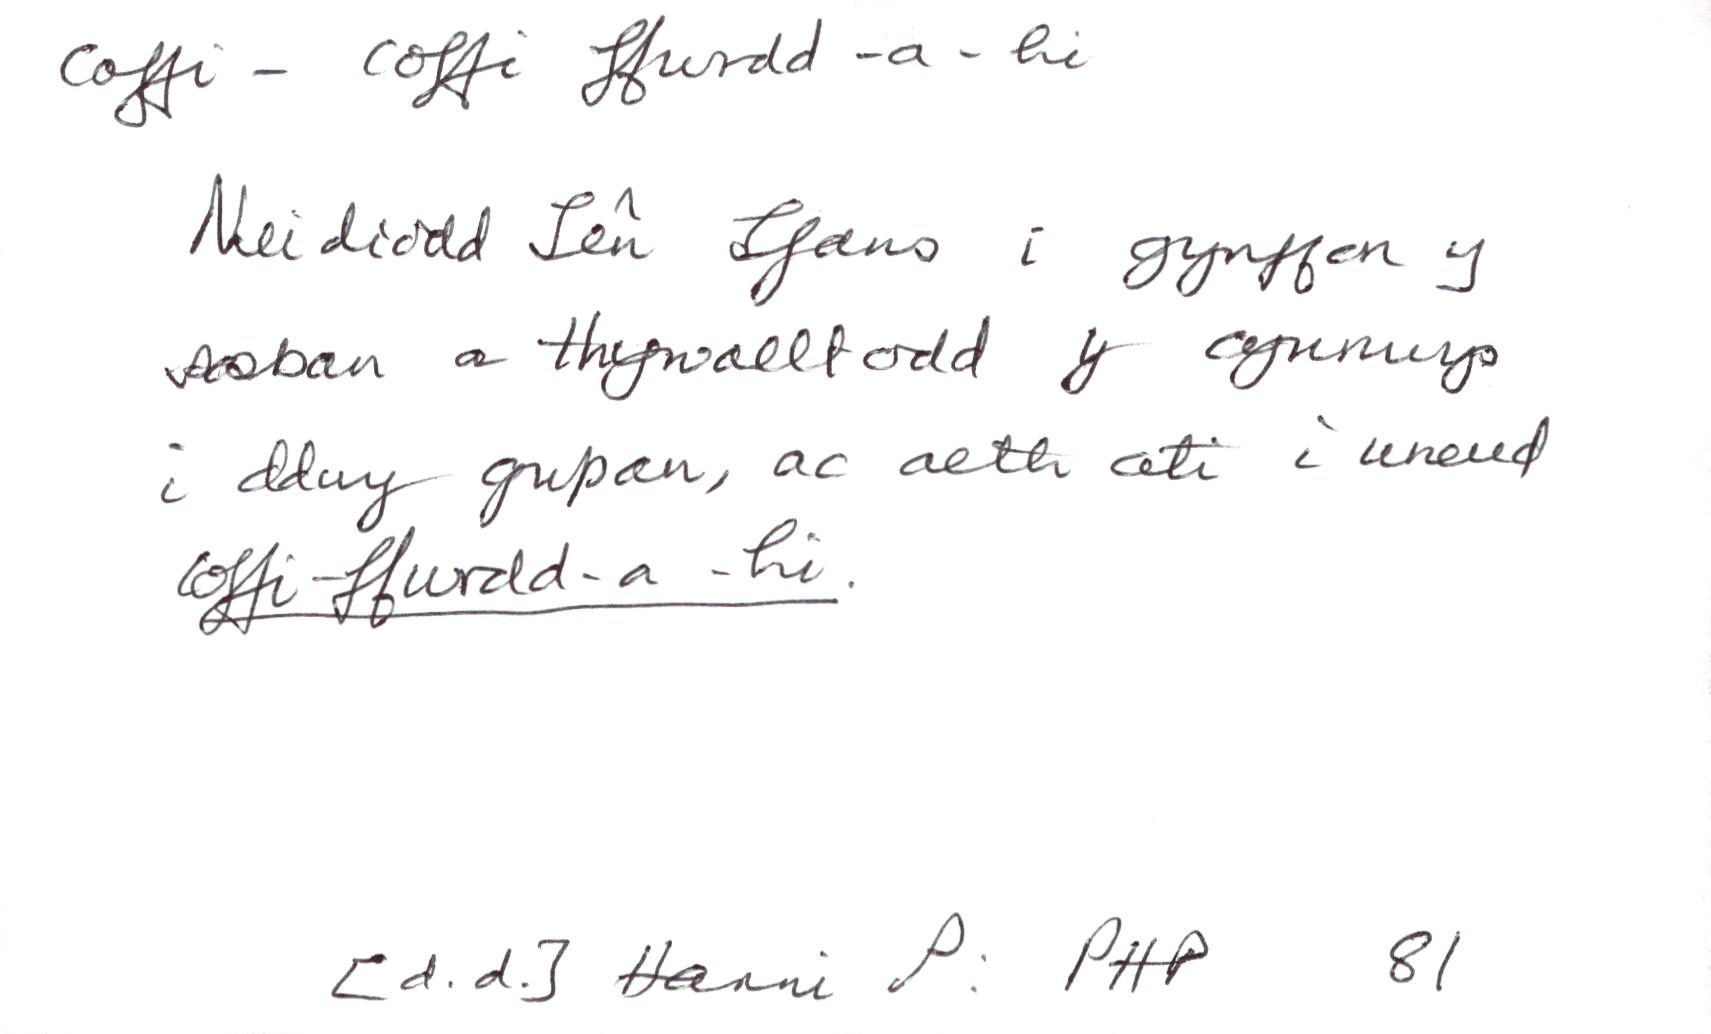 Coffi – coffi ffwrdd-a-hi
Neidiodd Sên Ifans i gynffon y
sosban a thywalltodd y cynnwys
i ddwy gwpan, ac aeth ati i wneud
coffi-ffwrdd-a-hi.
[d.d.] Harri P: PHP 81